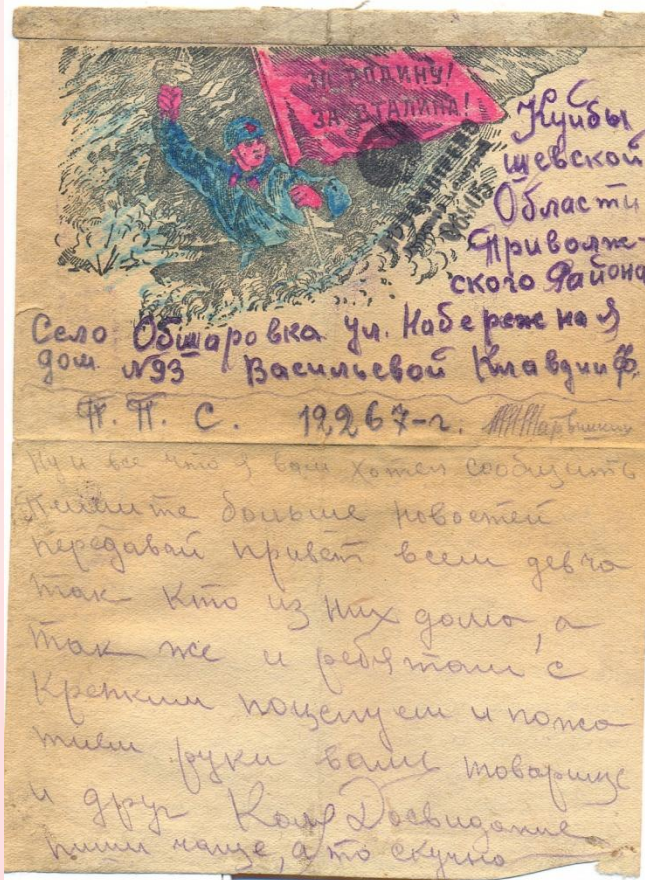 ЗА РОДИНУ!
ЗА СТАЛИНА!
Куйбы
шевской
Области
Приволж-
ского Района
Село Обшаровка ул. Набережная
дом. №93 Васильевой Клавдии Ф.
П. П. С. 12267-г.
Ну и все что я вам хотел сообщить
пишите больше новостей
передавай привет всем девча
там кто из них дома, а
так же и ребятам с
крепким поцелуем и пожа
тием руки ваш товарищ
и друг Коля Досвидание
пиши чаще, а то скучно